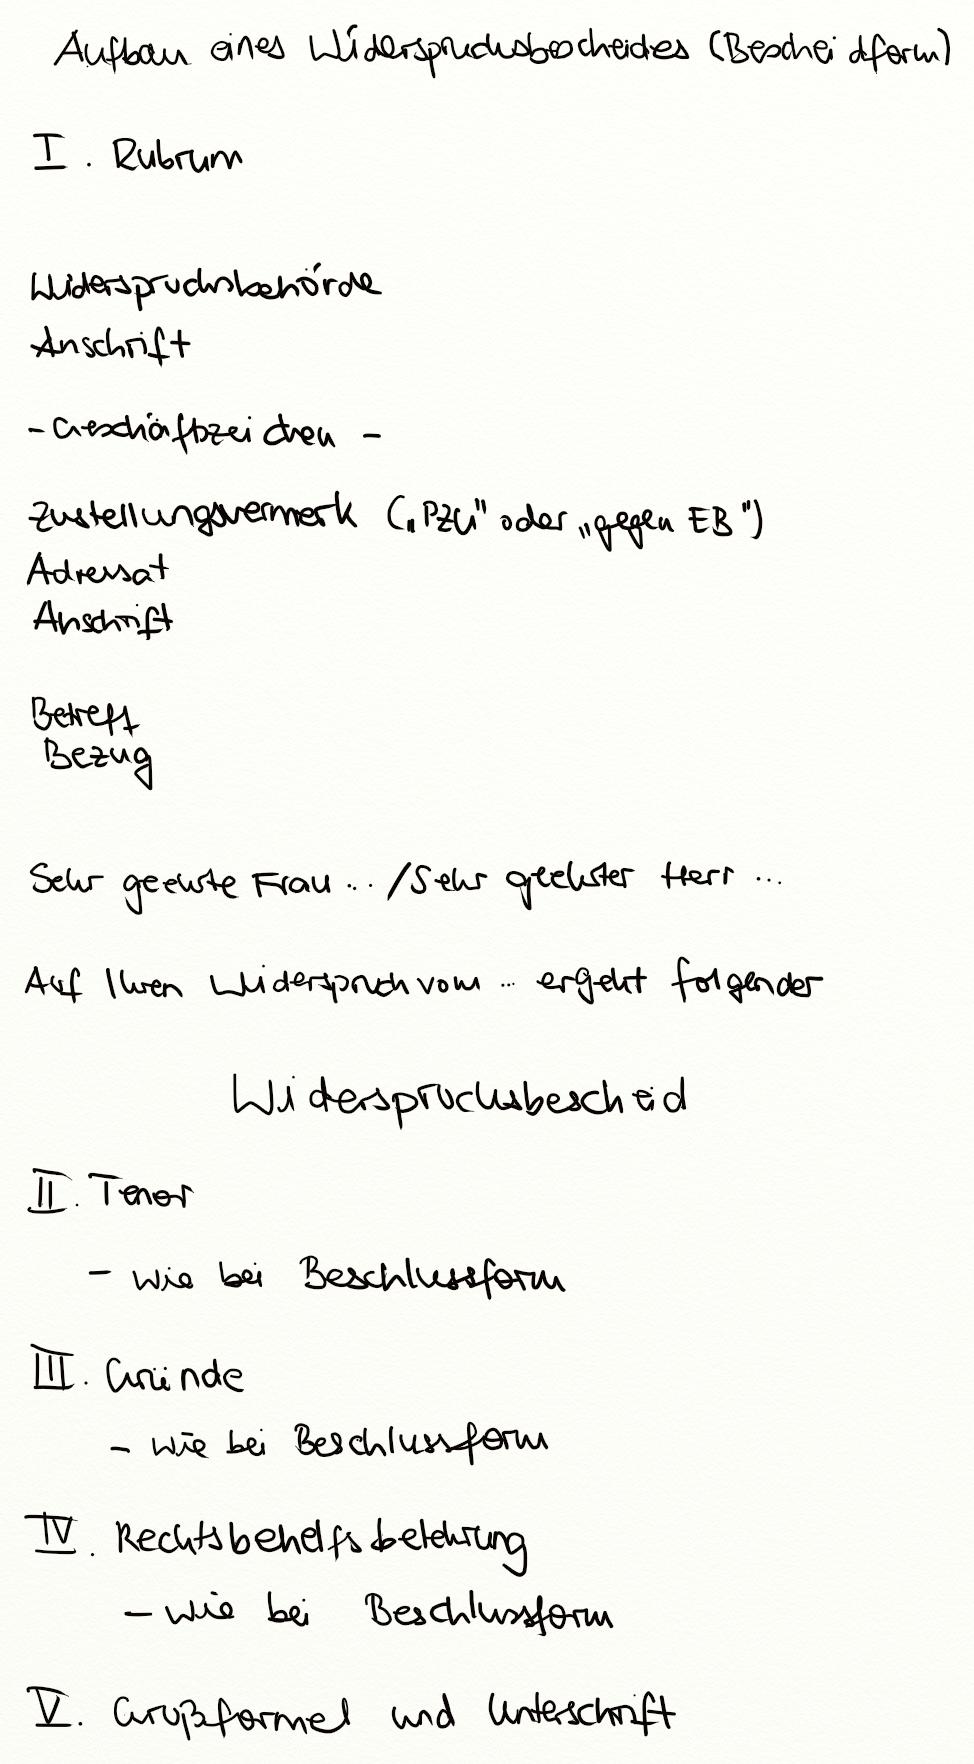 Aufbau eines Widerspruchsbescheides (Bescheidform)
I. Rubrum
Widerspruchsbehörde
Anschrift
- Geschäftszeichen -
Zustellungsvermerk („PZU" oder „gegen EB")
Adressat
Anschrift
Betreff
Bezug
Sehr geehrte Frau ... / Sehr geehrter Herr ...
Auf Ihren Widerspruch vom ... ergeht folgender
Widerspruchsbescheid
II. Tenor
- wie bei Beschlussform
III. Gründe
- wie bei Beschlussform
IV. Rechtsbehelfsbelehrung
- wie bei Beschlussform
V. Grußformel und Unterschrift